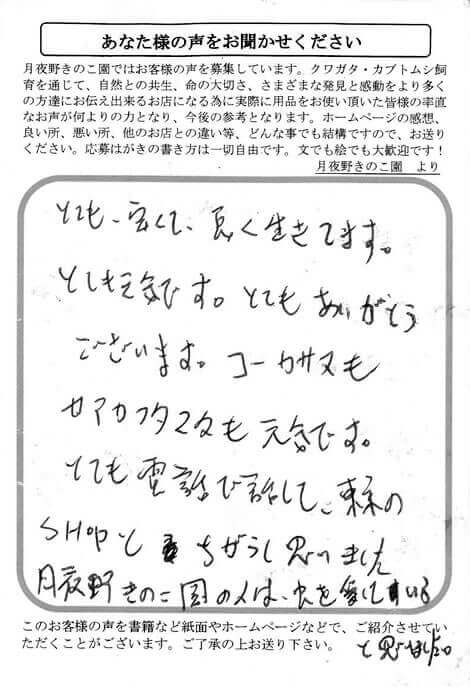 あなた様の声をお聞かせください
月夜野きのこ園ではお客様の声を募集しています。クワガタ・カブトムシ飼
育を通じて、自然との共生、命の大切さ、さまざまな発見と感動をより多く
の方達にお伝え出来るお店になる為に実際に用品をお使い頂いた皆様の率直
なお声が何よりの力となり、今後の参考となります。ホームページの感想、
良い所、悪い所、他のお店との違い等、どんな事でも結構ですので、お送り
ください。応募はがきの書き方は一切自由です。文でも絵でも大歓迎です！
月夜野きのこ園　より
とても、安くて、長く生きてます。
とても元気です。とてもありがとう
ございます。コーカサスも
も元気です。
とても電話で話して、
SHOPと ちがうし思いました
月夜野きのこ園の人は、虫を愛している
と思いました
このお客様の声を書籍など紙面やホームページなどで、ご紹介させてい
ただくことがございます。ご了承の上お送り下さい。